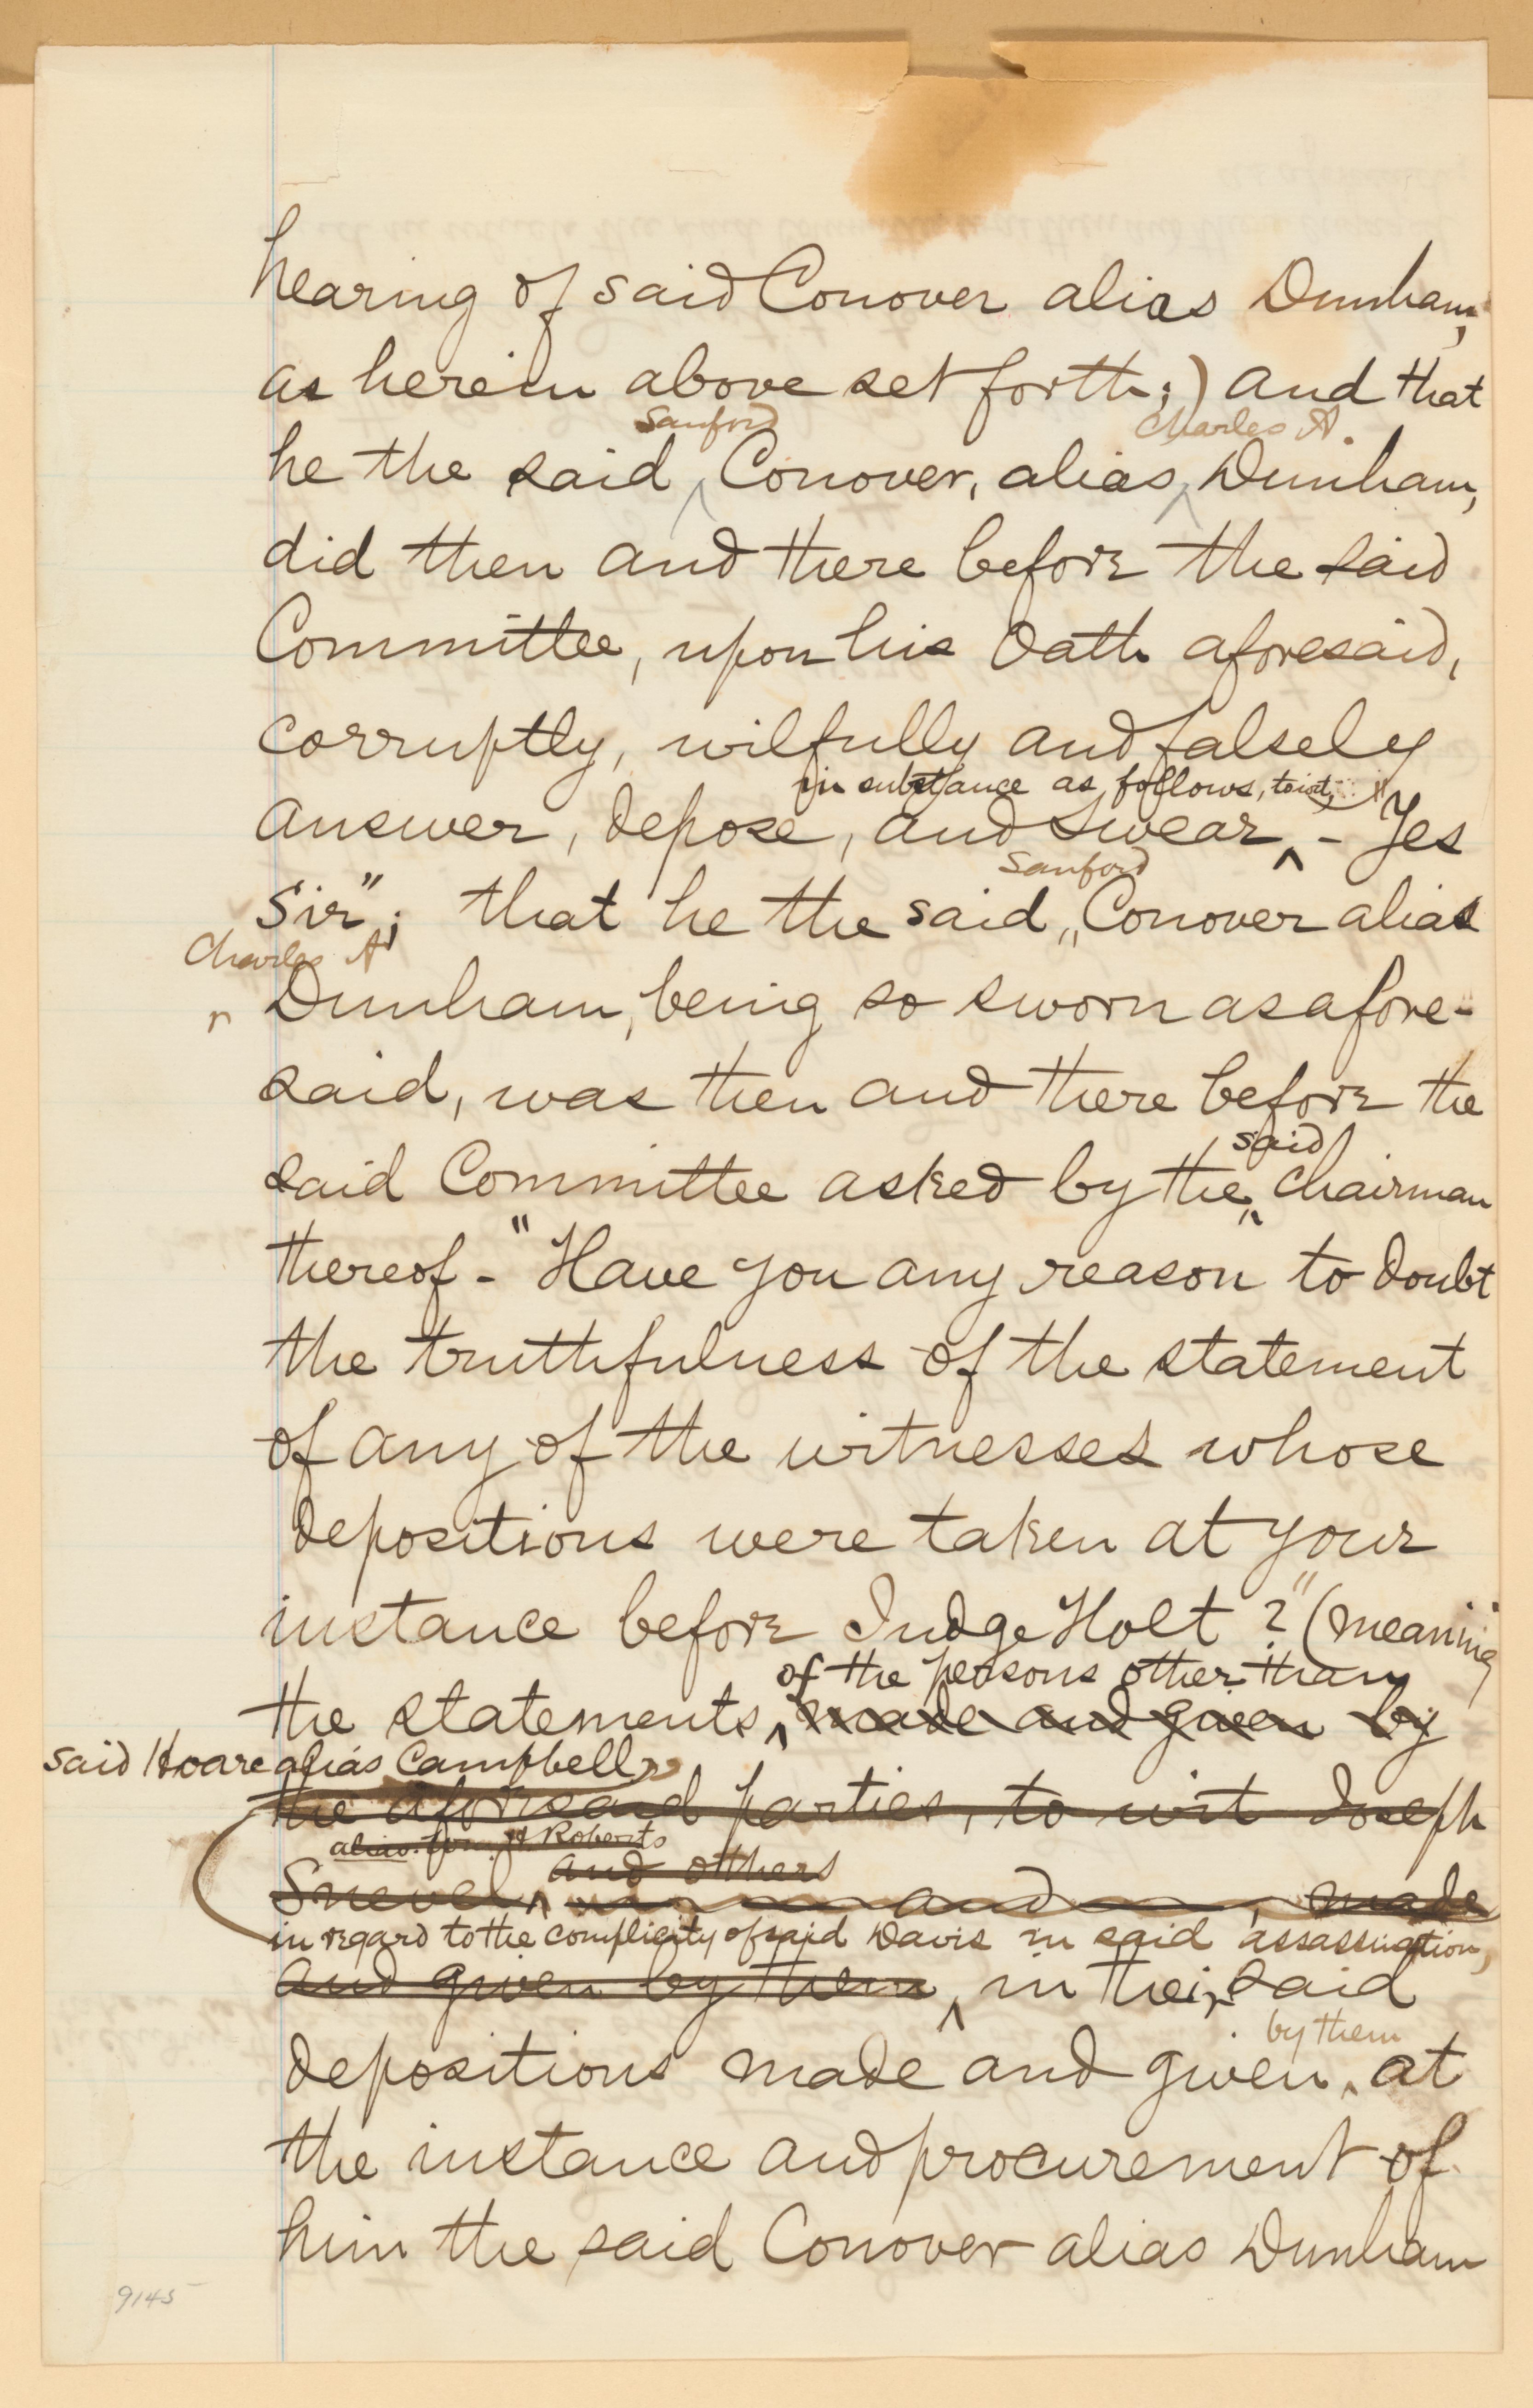 hearing of said Conover alias Dunham,
as herein above set forth;) and that
Sanford Charles A.
he the said ^ Conover, alias ^ Dunham,
did then and there before the said
Committee, upon his Oath aforesaid,
corruptly, wilfully and falsely
in substance as follows, towit,
answer, depose, and swear ^ - "Yes
Sanford
Sir"; that he the said, Conover alias
Charles A
Dunham, being so sworn as afore-
said, was then and there before the
said
said Committee asked by the ^ Chairman
thereof - "Have you any reason to doubt
the truthfulness of the statement
of any of the witnesses whose
depositions were taken at your
instance before Judge Holt?" (meaning
of the persons other than
the statements, ^ made and given by
said Hoare alias Campbell,
the aforesaid parties, to wit Joseph
alias Wm. H. Roberts
and others
Snevel, ^ and , made
in regard to the complicity of said Davis in said assassination,
and given by them, ^ in their said
by them
depositions made and given ^ at
the instance and procurement of
him the said Conover alias Dunham
9145